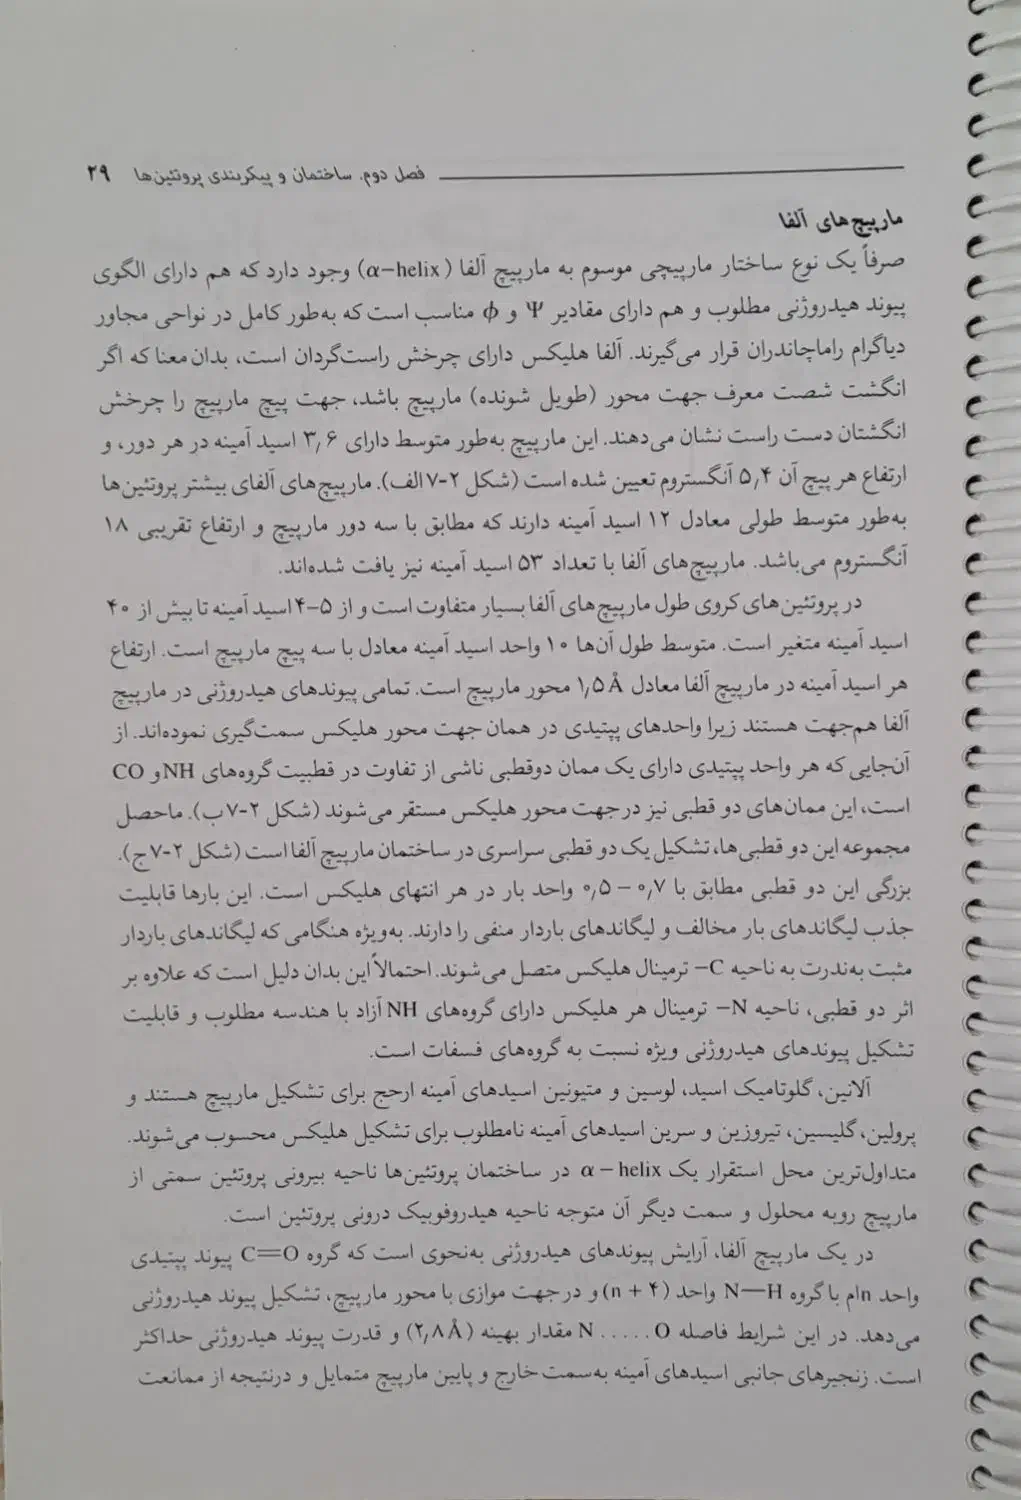 فصل دوم. ساختمان و پیکربندی پروتئین‌ها ۲۹
مارپیچ‌های آلفا
صرفاً یک نوع ساختار مارپیچی موسوم به مارپیچ آلفا (α–helix) وجود دارد که هم دارای الگوی
پیوند هیدروژنی مطلوب و هم دارای مقادیر Ψ و ϕ مناسب است که به‌طور کامل در نواحی مجاور
دیاگرام راماچاندران قرار می‌گیرند. آلفا هلیکس دارای چرخش راست‌گردان است، بدان‌معنا که اگر
انگشت شصت معرف جهت محور (طویل شونده) مارپیچ باشد، جهت پیچ مارپیچ را چرخش
انگشتان دست راست نشان می‌دهند. این مارپیچ به‌طور متوسط دارای ۳٫۶ اسید آمینه در هر دور، و
ارتفاع هر پیچ آن ۵٫۴ آنگستروم تعیین شده است (شکل ۲-۷الف). مارپیچ‌های آلفای بیشتر پروتئین‌ها
به‌طور متوسط طولی معادل ۱۲ اسید آمینه دارند که مطابق با سه دور مارپیچ و ارتفاع تقریبی ۱۸
آنگستروم می‌باشد. مارپیچ‌های آلفا با تعداد ۵۳ اسید آمینه نیز یافت شده‌اند.
در پروتئین‌های کروی طول مارپیچ‌های آلفا بسیار متفاوت است و از ۵-۴ اسید آمینه تا بیش از ۴۰
اسید آمینه متغیر است. متوسط طول آن‌ها ۱۰ واحد اسید آمینه معادل با سه پیچ مارپیچ است. ارتفاع
هر اسید آمینه در مارپیچ آلفا معادل ۱٫۵ Å محور مارپیچ است. تمامی پیوندهای هیدروژنی در مارپیچ
آلفا هم‌جهت هستند زیرا واحدهای پپتیدی در همان جهت محور هلیکس سمت‌گیری نموده‌اند. از
آن‌جایی که هر واحد پپتیدی دارای یک ممان دوقطبی ناشی از تفاوت در قطبیت گروه‌های NH و CO
است، این ممان‌های دو قطبی نیز در جهت محور هلیکس مستقر می‌شوند (شکل ۲-۷ب). ماحصل
مجموعه این دو قطبی‌ها، تشکیل یک دو قطبی سراسری در ساختمان مارپیچ آلفا است (شکل ۲-۷ج).
بزرگی این دو قطبی مطابق با ۰٫۷ – ۰٫۵ واحد بار در هر انتهای هلیکس است. این بارها قابلیت
جذب لیگاندهای بار مخالف و لیگاندهای باردار منفی را دارند. به‌ویژه هنگامی که لیگاندهای باردار
مثبت به‌ندرت به ناحیه C– ترمینال هلیکس متصل می‌شوند. احتمالاً این بدان دلیل است که علاوه بر
اثر دو قطبی، ناحیه N– ترمینال هر هلیکس دارای گروه‌های NH آزاد با هندسه مطلوب و قابلیت
تشکیل پیوندهای هیدروژنی ویژه نسبت به گروه‌های فسفات است.
آلانین، گلوتامیک اسید، لوسین و متیونین اسیدهای آمینه ارجح برای تشکیل مارپیچ هستند و
پرولین، گلیسین، تیروزین و سرین اسیدهای آمینه نامطلوب برای تشکیل هلیکس محسوب می‌شوند.
متداول‌ترین محل استقرار یک α – helix در ساختمان پروتئین‌ها ناحیه بیرونی پروتئین سمتی از
مارپیچ روبه محلول و سمت دیگر آن متوجه ناحیه هیدروفوبیک درونی پروتئین است.
در یک مارپیچ آلفا، آرایش پیوندهای هیدروژنی به‌نحوی است که گروه C=O پیوند پپتیدی
واحد nام با گروه N—H واحد (n + ۴) و در جهت موازی با محور مارپیچ، تشکیل پیوند هیدروژنی
می‌دهد. در این شرایط فاصله N . . . . . O مقدار بهینه (۲٫۸ Å) و قدرت پیوند هیدروژنی حداکثر
است. زنجیرهای جانبی اسیدهای آمینه به‌سمت خارج و پایین مارپیچ متمایل و درنتیجه از ممانعت